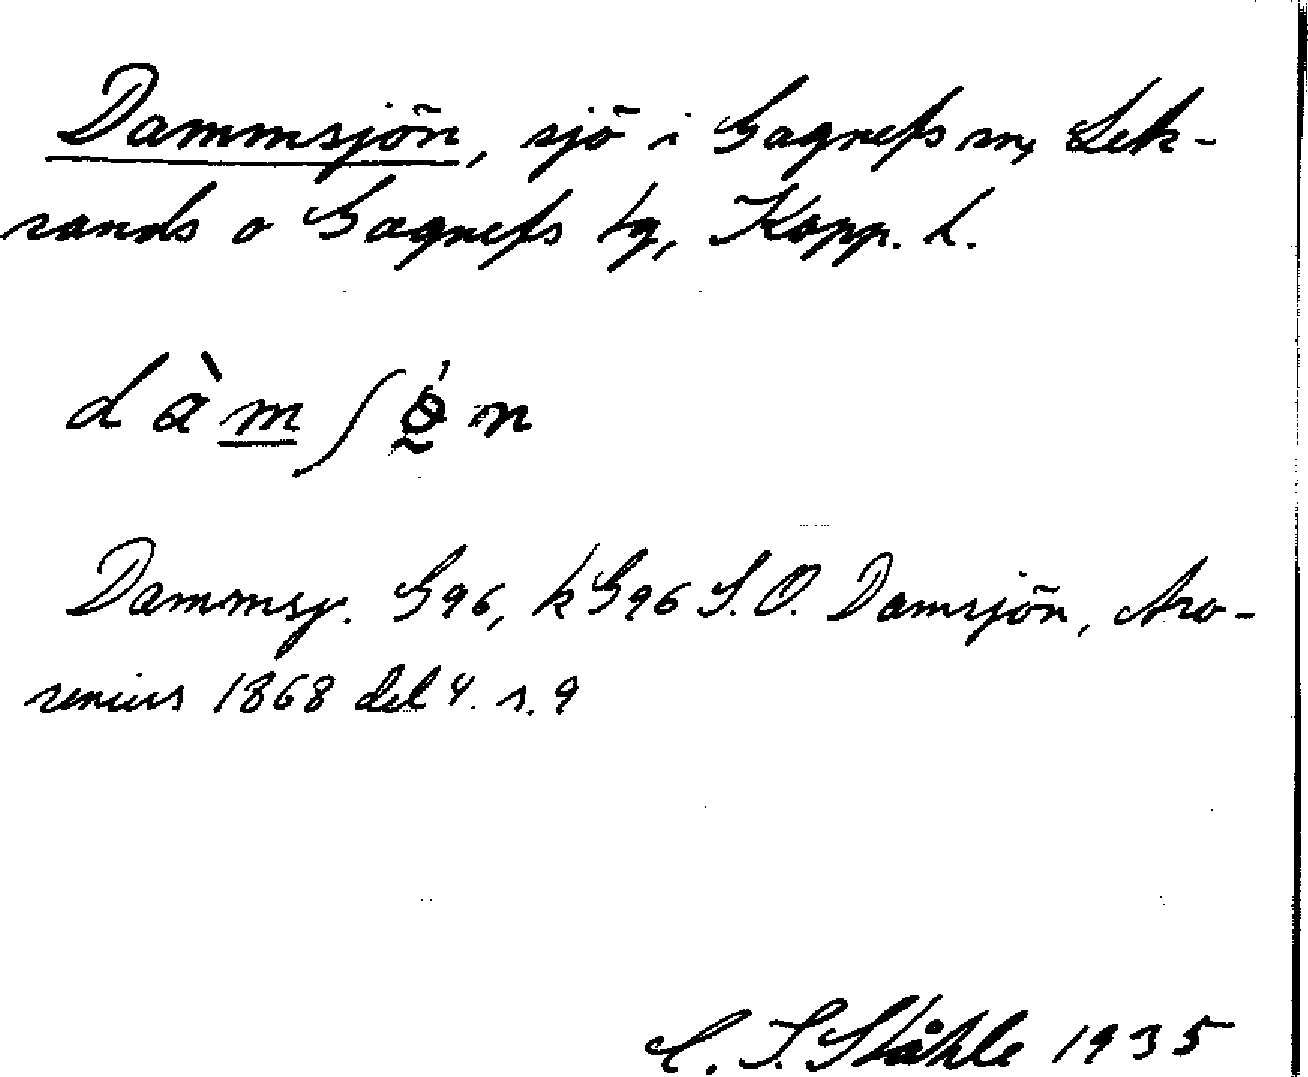 Dammsjön, sjö i Gagnefs sn, Lek-
sands o Gagnefs tg, Kopp. l.
dàm̲ʃǿ̰n
Dammsj. G96, kG96 S.O. Damsjön, Aro-
senius 1868 del 4. s. 9
C. I. Ståhle 1935